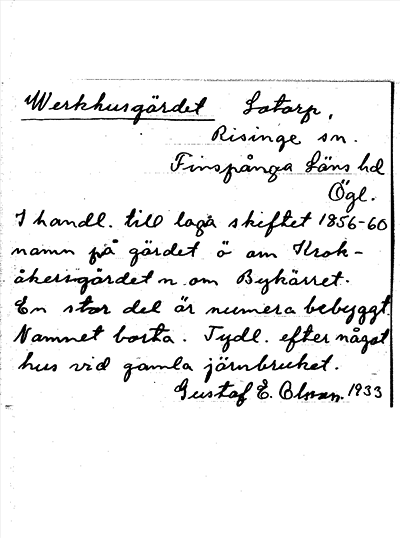 Werkhusgärdet Lotorp,
Risinge sn.
Finspånga Läns hd
Ögl.
I handl. till laga skiftet 1856-60
namn på gärdet ö om Krok-
åkersgärdet n. om Bykärret.
En stor del är numera bebyggt.
Namnet borta. Tydl. efter något
hus vid gamla järnbruket.
Gustaf E. 1933